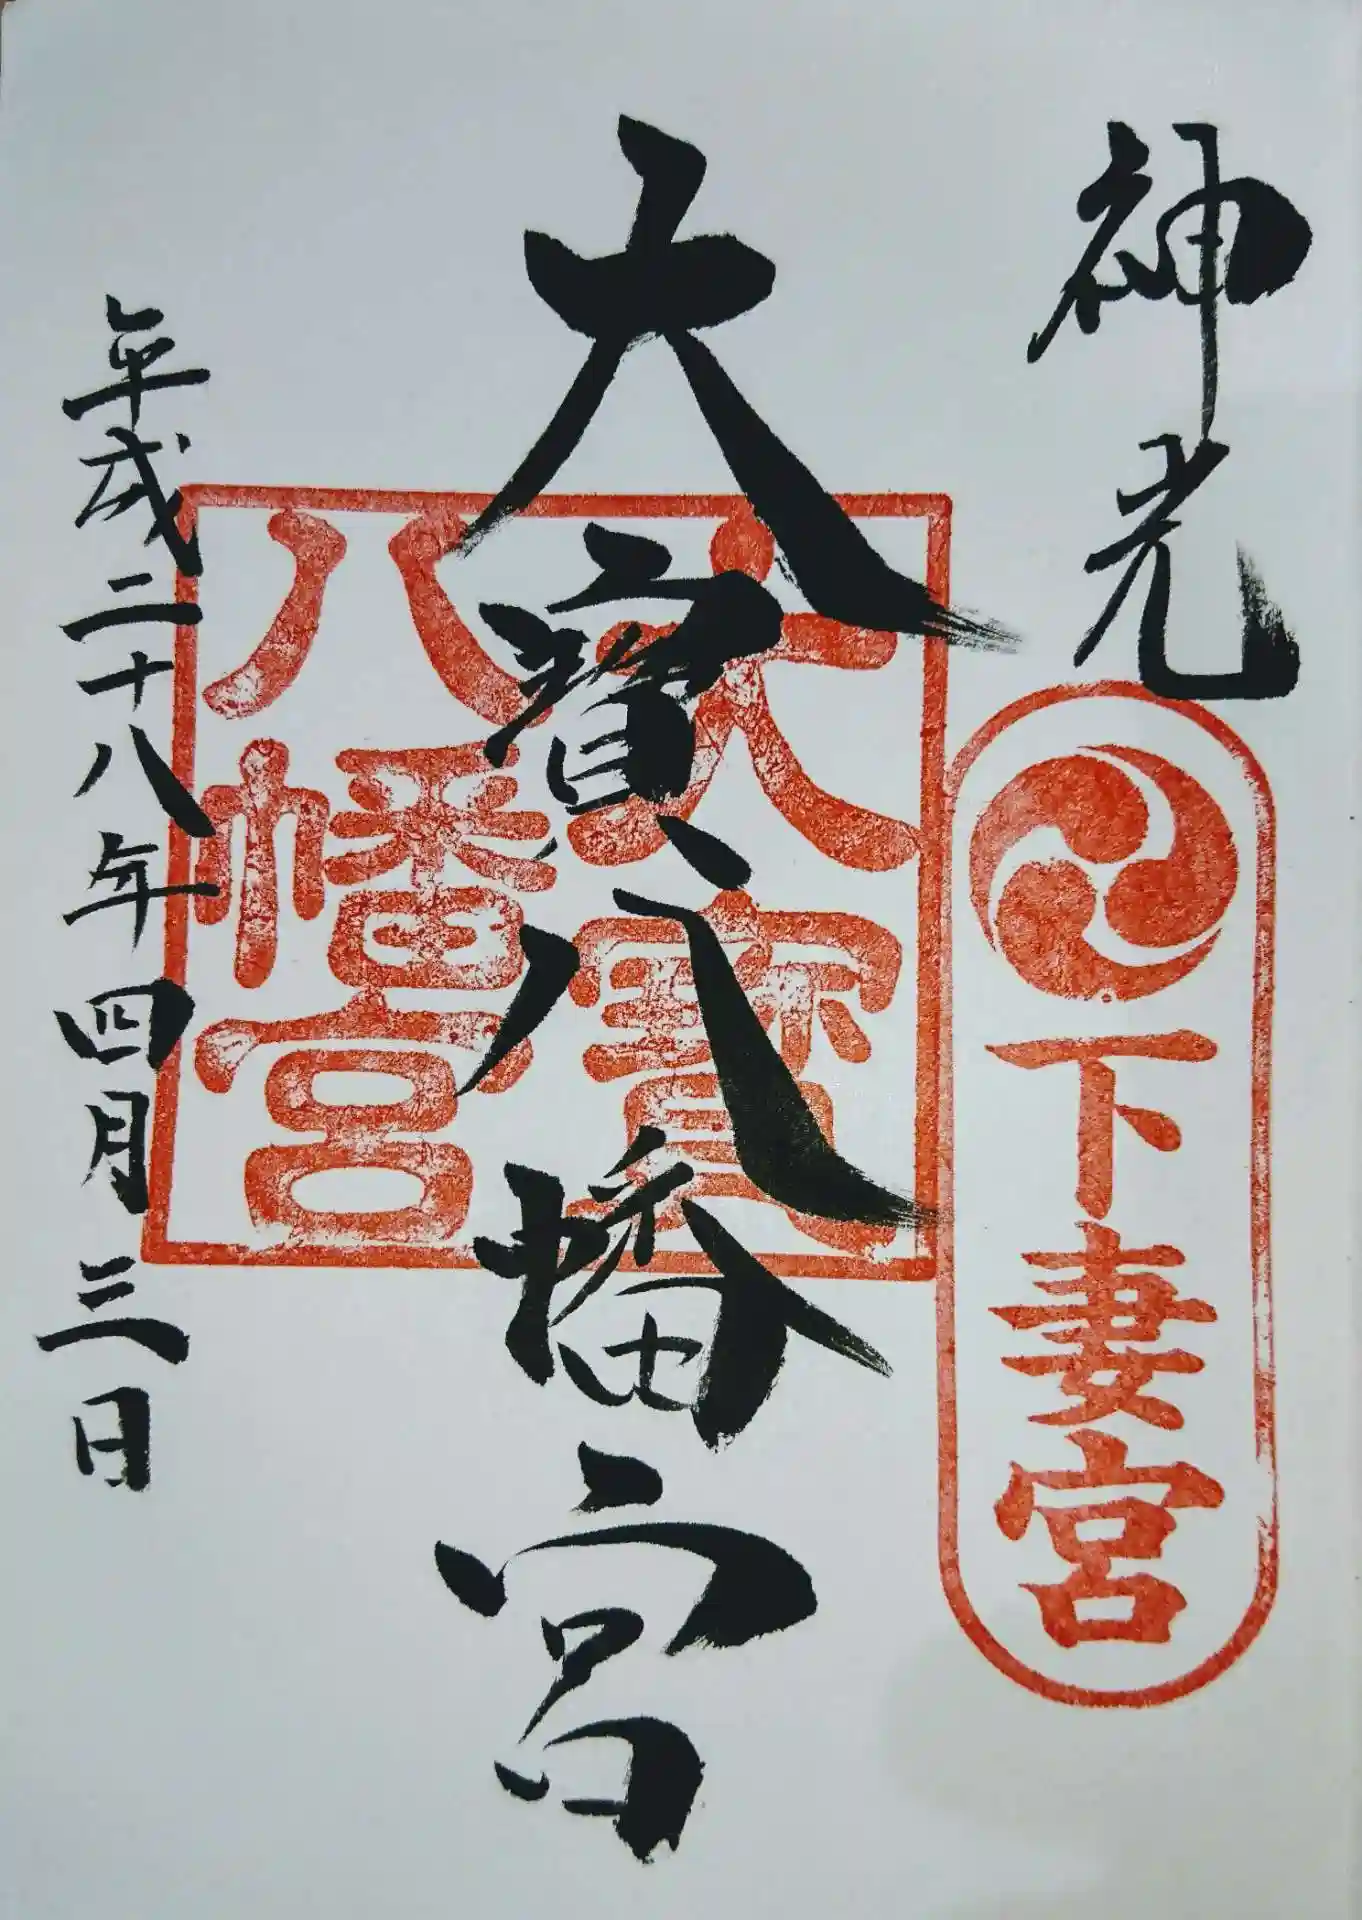 神光
下妻宮
大寳八幡宮
大寳
八幡宮
平成二十八年四月三日